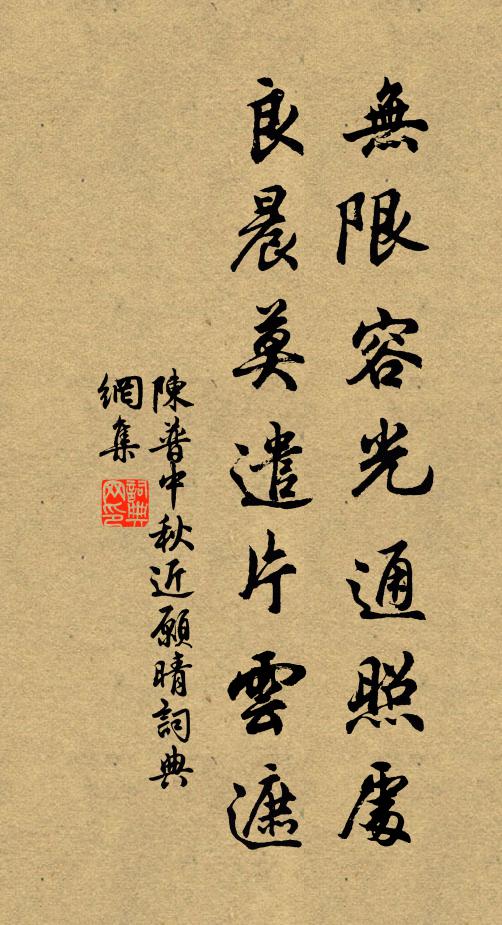 無限容光通照處
良晨莫遣片雲遮
陳普中秋近願晴詞典
網集
詞典
网印